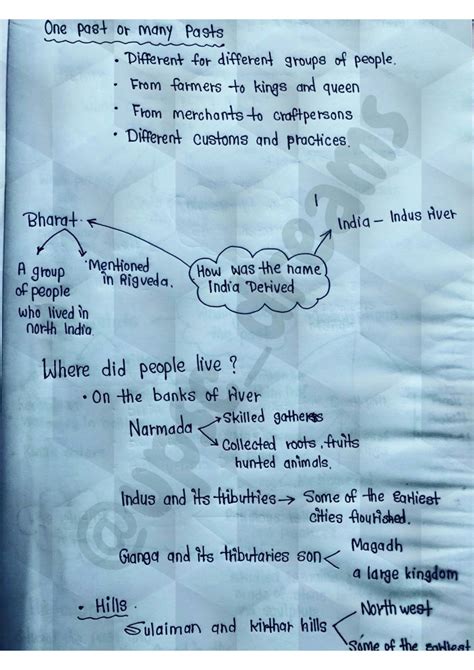 One past or many Pasts
• Different for different groups of people.
• From farmers to kings and queen
• From merchants to craftpersons
• Different customs and practices.
India - Indus River
Bharat
How was the name
India Derived
• Mentioned
in Rigveda.
A group
of people
who lived in
north India.
Where did people live ?
• On the banks of River
Narmada
• Skilled gathers
• Collected roots, fruits
hunted animals.
Indus and its tributries → Some of the Earliest
cities flourished.
Ganga and its tributaries son
Magadh
a large kingdom
• Hills.
Sulaiman and kirthar hills
North west
Some of the earliest